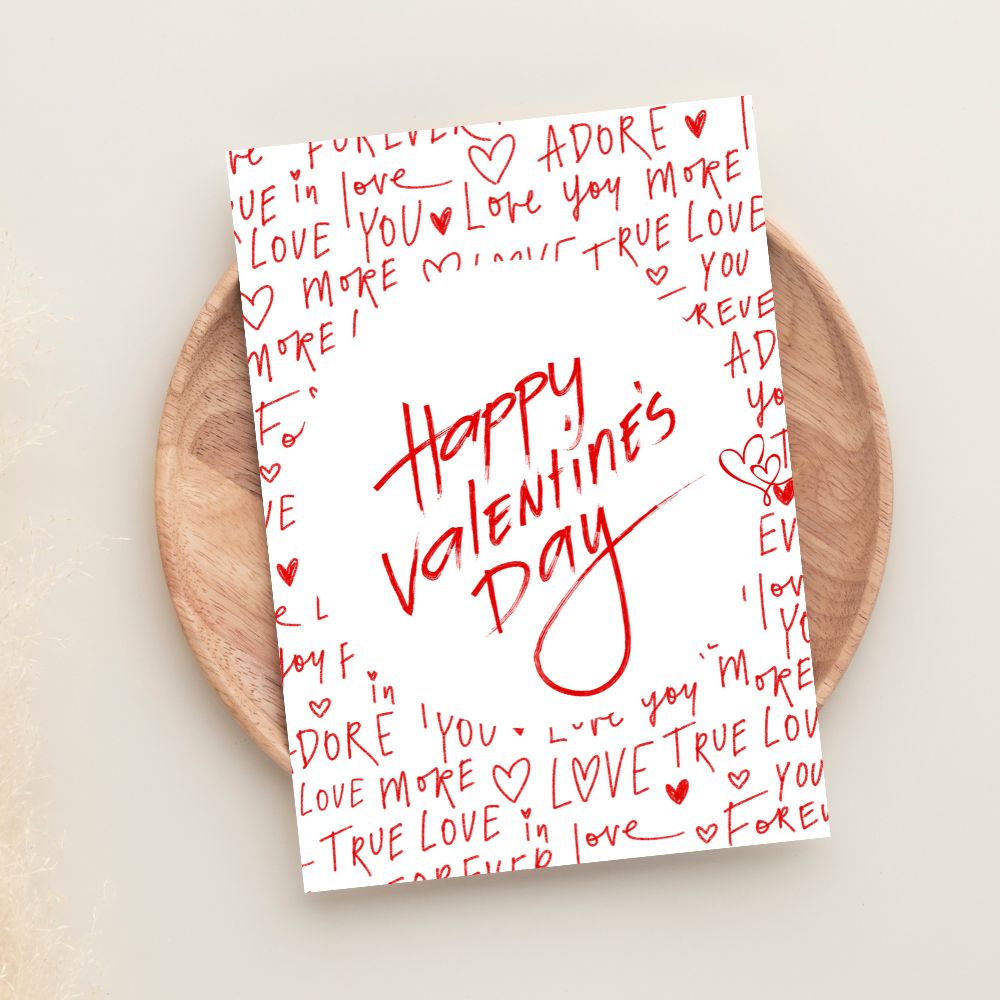 ve FOREVER
UE in love ♡ ADORE ♥
LOVE YOU ♥ Love you MORE
♡ MORE ♡ LOVE TRUE LOVE
MORE ♡ YOU
Fo REVE
Happy
Valentine's
Day
AD
yo
VE
EV
e L lov
joy F YO
in MORE
ADORE YOU Love you
LOVE MORE ♡ LOVE TRUE LOV
TRUE LOVE in love ♥ ♡ YOU
FOREVER ♡ FOREV